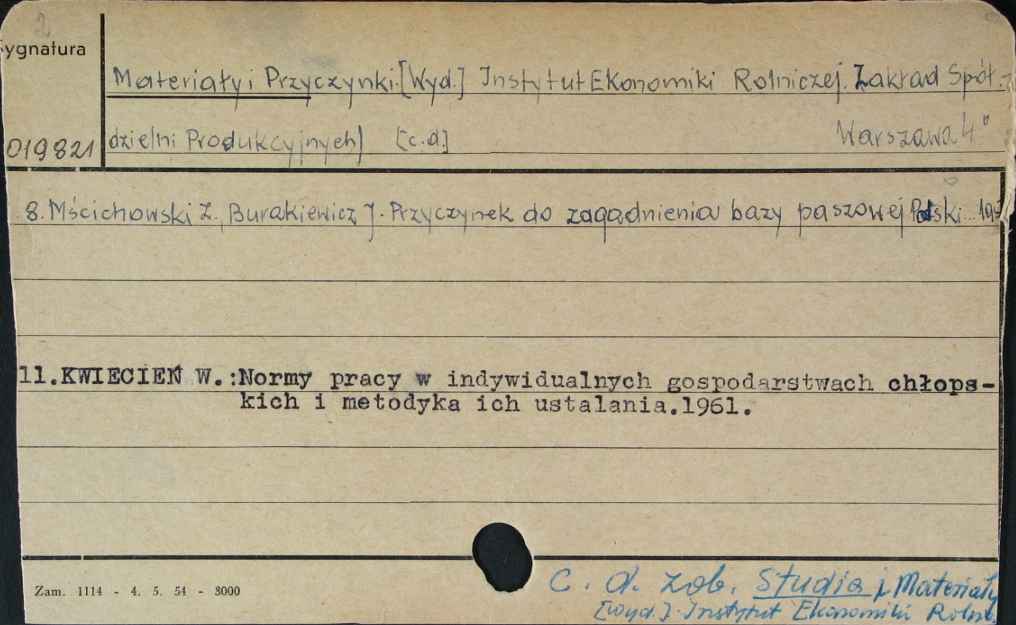 2
Sygnatura
Materiały i Przyczynki. [Wyd.] Instytut Ekonomiki Rolniczej. Zakład Spół-
019821 dzielni Produkcyjnych) [c.d.] Warszawa 4°
8. Mścichowski Z., Burakiewicz J. Przyczynek do zagadnienia bazy paszowej Polski
11.KWIECIEŃ W.:Normy pracy w indywidualnych gospodarstwach chłops-
kich i metodyka ich ustalania.1961.
Zam. 1114 - 4. 5. 54 - 8000
C. d. zob. Studia i Materiały
[Wyd.] Instytut Ekonomiki Roln.